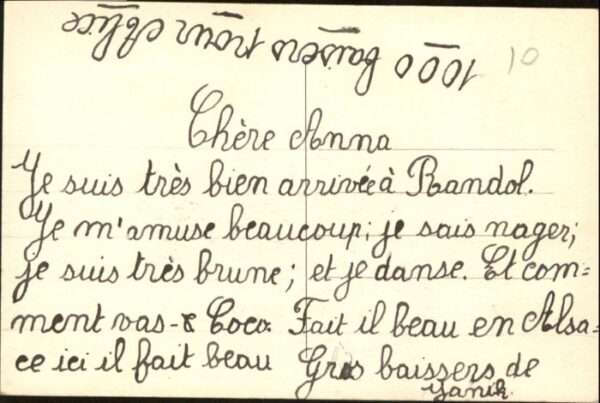 1000 baisers pour Alice
10
Chère Anna
Je suis très bien arrivée à Randol.
Je m'amuse beaucoup; je sais nager;
je suis très brune; et je danse. Et com=
ment vas- Coco. Fait il beau en Alsa=
ce ici il fait beau Gros baissers de
Yanik.